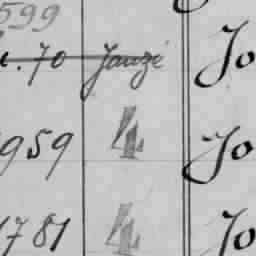 599
70 Janzé Jo
959 4 Jo
1781 4 Jo